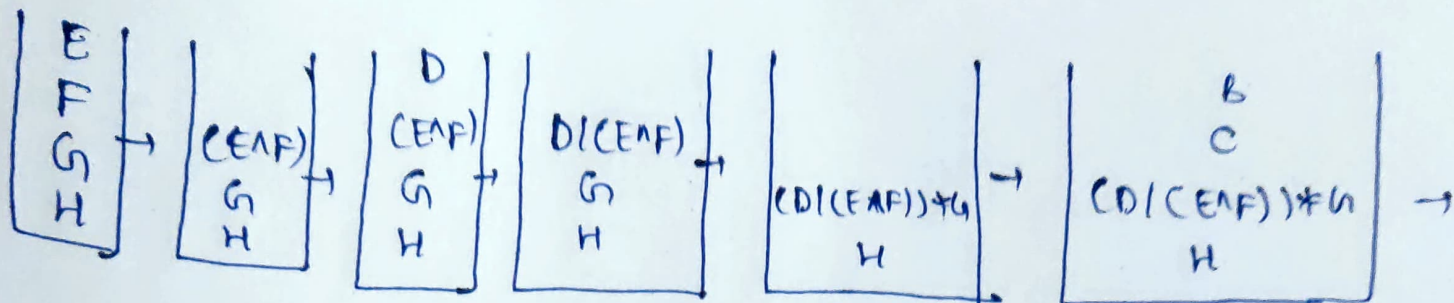 E
F
G
H
→
(E^F)
G
H
→
D
(E^F)
G
H
→
D/(E^F)
G
H
→
(D/(E^F))*G
H
→
B
C
(D/(E^F))*G
H
→